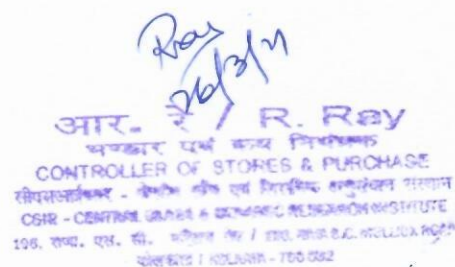 Ray
26/3/21
आर. रै / R. Ray
भण्डार एवं क्रय नियंत्रक
CONTROLLER OF STORES & PURCHASE
सीएसआईआर - केन्द्रीय काँच एवं सिरामिक अनुसंधान संस्थान
CSIR - CENTRAL GLASS & CERAMIC RESEARCH INSTITUTE
196, राजा एस. सी. मल्लिक रोड / 196, RAJA S.C. MULLICK ROAD
कोलकाता / KOLKATA - 700 032